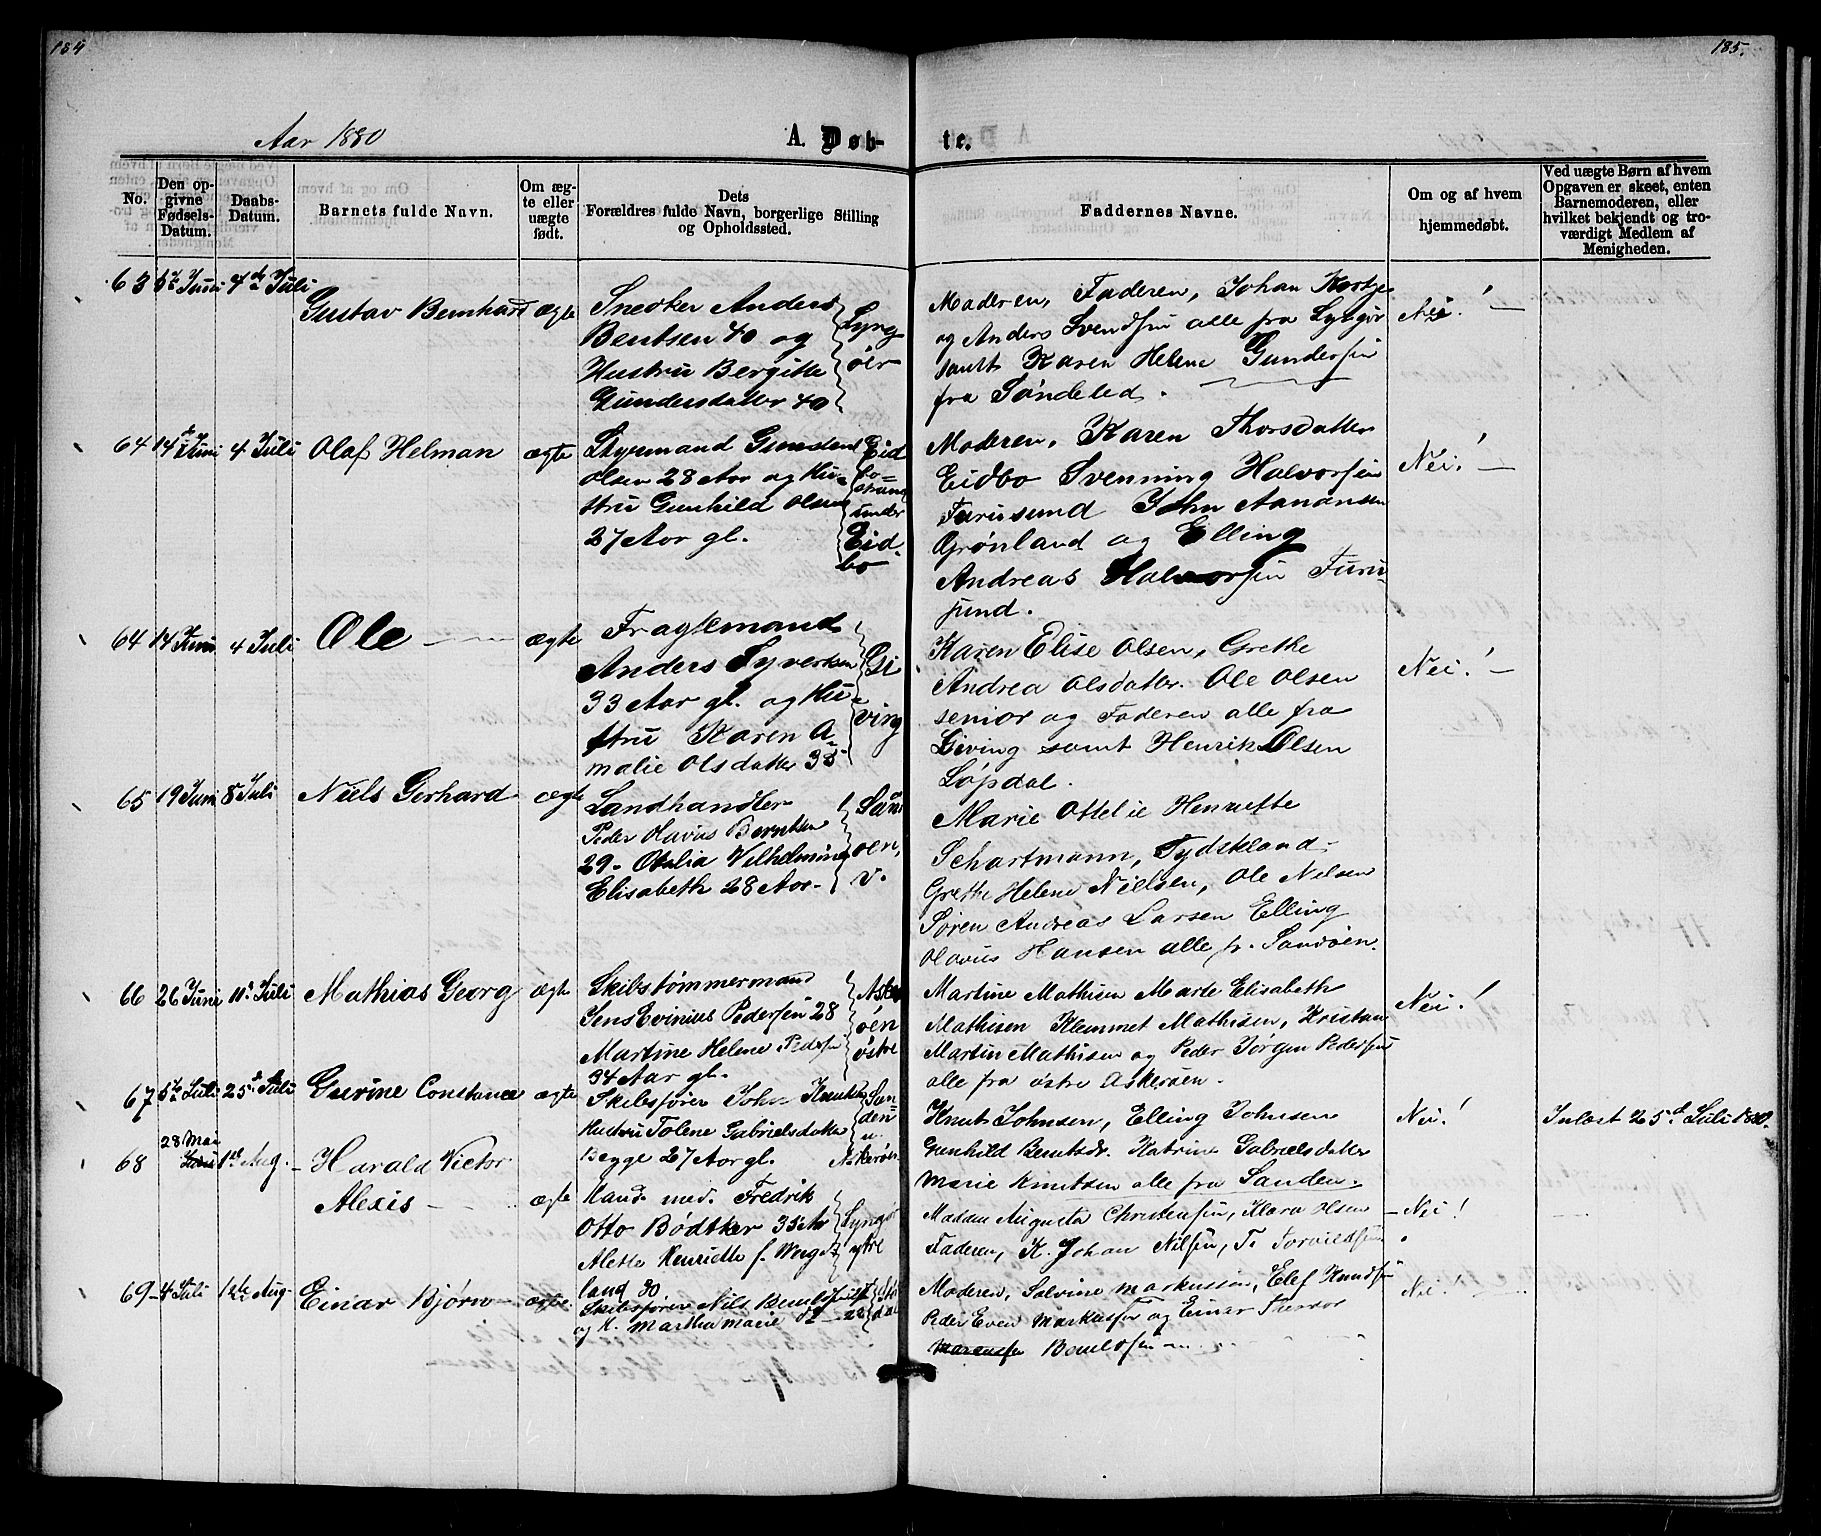 184
185.
Aar 1880
A. Døbte.
No.
Den opgivne Fødsels-Datum.
Daabs-Datum.
Barnets fulde Navn.
Om ægte eller uægte født.
Dets Forældres fulde Navn, borgerlige Stilling og Opholdssted.
Faddernes Navne.
Om og af hvem hjemmedøbt.
Ved uægte Børn af hvem Opgaven er skeet, enten Barnemoderen, eller hvilket bekjendt og troværdigt Medlem af Menigheden.
63 Juni 4de Juli
Gustav Bernhard ægte
Snedker Anders
Bentsen 40 og
Hustru Bergitte
Gundersdatter 40
Lyng
öer
Moderen, Faderen, Johan
og Anders Svendsen alle fra Lyngör
samt Karen Helene Gundersen
fra Söndeled.
Nei!
64 14de Juni 4 Juli Olaf Helman ægte
Styrmand Gunsten
Olsen 28 Aar og Hu-
stru Gunhild Olsen
27 Aar gl.
Eid
bo
strand
under
Eid-
bo
Moderen, Karen Thorsdatter
Eidbo Svenning Halvorsen
Furusund John Aanansen
Grönland og Elling
Andreas Halvorsen Furu-
sund.
Nei!
64 14 Juni 4 Juli Ole ægte
Fragtemand
Anders Syvertsen
33 Aar gl. og Hu-
stru Karen A-
malie Olsdatter 38
Gi
ving
Karen Elise Olsen, Grethe
Andrea Olsdatter. Ole Olsen
senior og Faderen alle fra
Giving samt Henrik Olsen
Löpdal.
Nei!
65 19 Juni 8 Juli Niels Gerhard ægte
Landhandler
Peder Olavus Berntsen
29. Otalia Vilhelmine
Elisabeth 28 Aar.
Sand
öen,
v.
Marie Ottelie Henriette
Schartmann, Tydskland
Grethe Helene Nielsen, Ole Nelsen
Sören Andreas Larsen Elling
Olavus Hansen alle fr. Sandöen.
66 26 Juni 11 Juli Mathias Georg ægte
Skibstømmermand
Jens Evinius Pedersen 28
Martine Helene Pedersen
34 Aar gl.
Asker
öen
östre
Martine Mathisen Marte Elisabeth
Mathisen Klemmet Mathisen, Kristian
Martin Mathisen og Peder Jörgen Pedersen
alle fra östre Askeröen.
Nei!
67 5te Juli 25de Juli Gurine Constance ægte
Skibsförer John Knutsen
Hustru Tolene Gabrielsdatter
Begge 27 Aar gl.
San-
den
Askeröen
Knut Johnsen, Elling Johnsen
Gunhild Berntsdr. Katrine Gabrielsdatter
Marie Knutsen alle fra Sanden.
Nei!
Indløst 25de Juli 1880.
68 28 Mai 1ste Aug. Harald Victor
Alexis ægte
Kand. med. Fredrik
Otto Bödtker 33 Ar
Alette Henriette f. Werge
land 30
Lyngör
ytre
Madam Augusta Christensen, Klara Olsen
Faderen, K. Johan Nilsen, T. Torvildsen
Nei!
69 4 Juli 1ste Aug. Einar Björn ægte
Skibsförer Nils
og H. Martha Marie
Moderen, Salvine Markussen, Elef Knudsen
Peder Even Markussen og Einar
Nei!